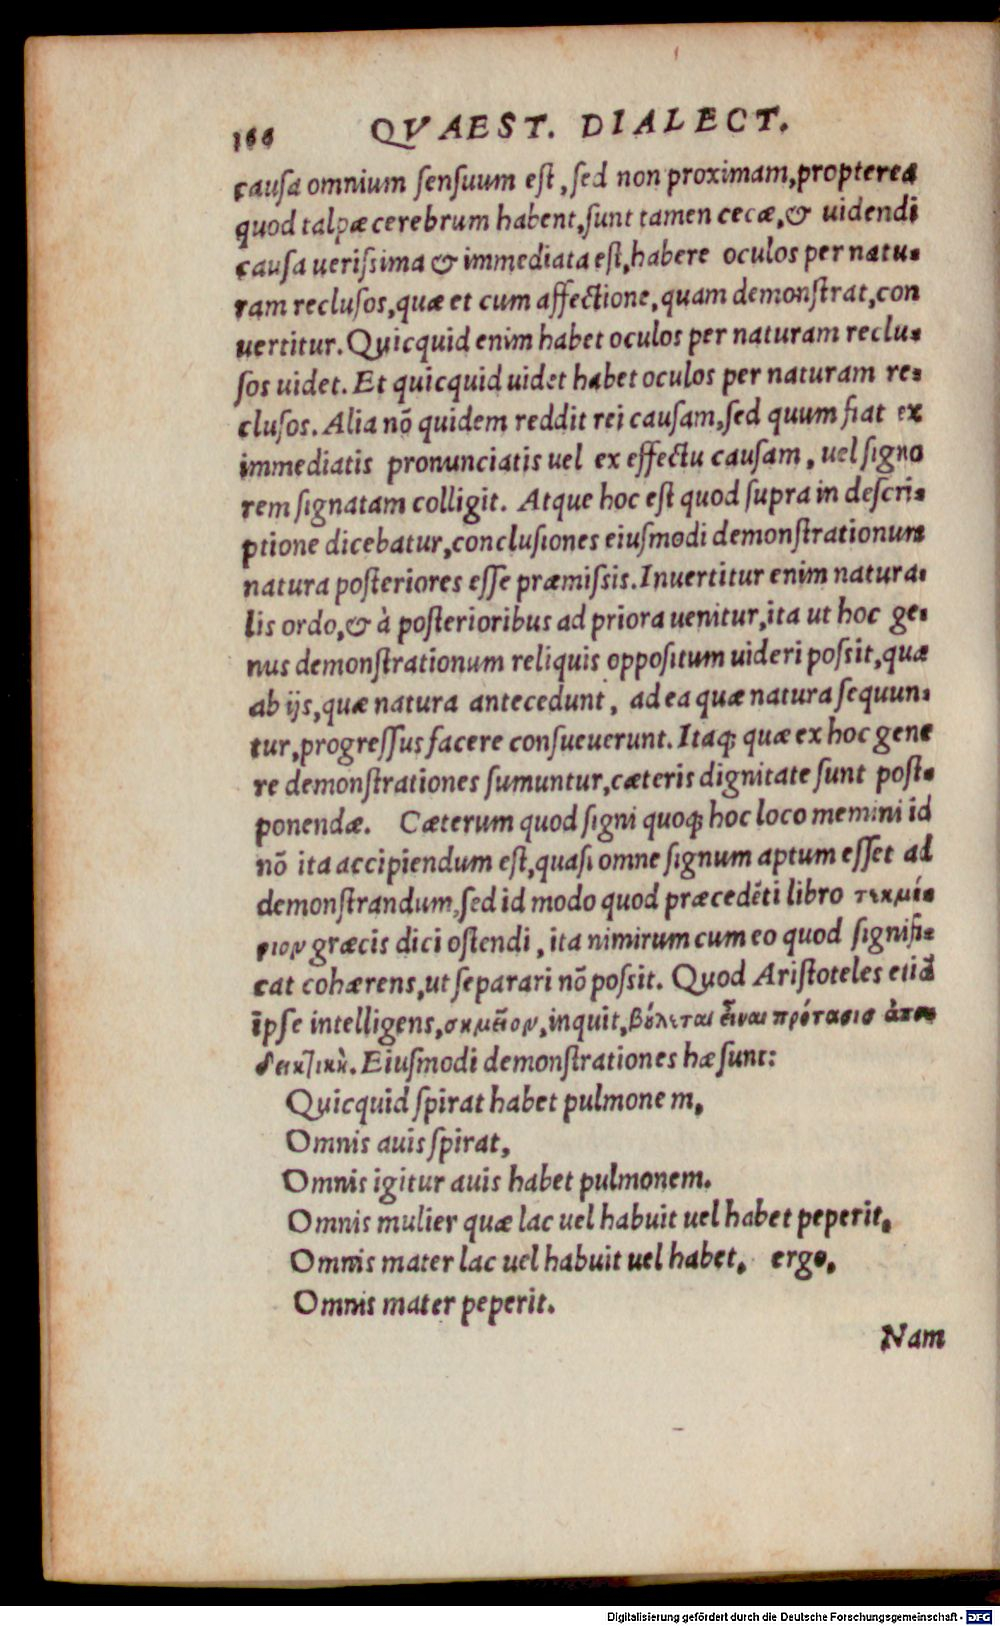 166 QVAEST. DIALECT.
causa omnium sensuum est, sed non proximam, propterea
quod talpæ cerebrum habent, sunt tamen cecæ, & uidendi
causa uerissima & immediata est, habere oculos per natu-
ram reclusos, quæ et cum affectione, quam demonstrat, con
uertitur. Quicquid enim habet oculos per naturam reclu-
sos uidet. Et quicquid uidet habet oculos per naturam re-
clusos. Alia nō quidem reddit rei causam, sed quum fiat ex
immediatis pronunciatis uel ex effectu causam, uel signo
rem signatam colligit. Atque hoc est quod supra in descri-
ptione dicebatur, conclusiones eiusmodi demonstrationum
natura posteriores esse præmissis. Inuertitur enim natura-
lis ordo, & à posterioribus ad priora uenitur, ita ut hoc ge-
nus demonstrationum reliquis oppositum uideri possit, quæ
ab ijs, quæ natura antecedunt, ad ea quæ natura sequun-
tur, progressus facere consueuerunt. Itaq; quæ ex hoc gene
re demonstrationes sumuntur, cæteris dignitate sunt post-
ponendæ. Cæterum quod signi quoq; hoc loco memini id
nō ita accipiendum est, quasi omne signum aptum esset ad
demonstrandum, sed id modo quod præcedēti libro τεκμί-
ριον græcis dici ostendi, ita nimirum cum eo quod signifi-
cat cohærens, ut separari nō possit. Quod Aristoteles etiā
ipse intelligens, σημεῖον, inquit, βόλεται εἶναι πρότασις ἀπο
δεικτικὴ. Eiusmodi demonstrationes hæ sunt:
Quicquid spirat habet pulmonem,
Omnis auis spirat,
Omnis igitur auis habet pulmonem.
Omnis mulier quæ lac uel habuit uel habet peperit,
Omnis mater lac uel habuit uel habet, ergo,
Omnis mater peperit.
Nam
Digitalisierung gefördert durch die Deutsche Forschungsgemeinschaft - DFG